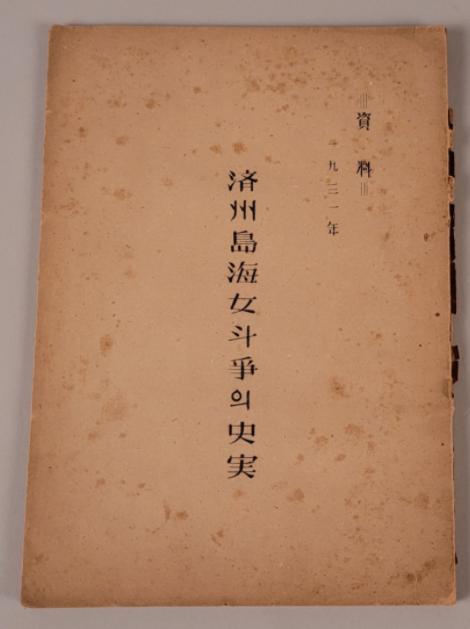 資料
一九三一年
済州島海女斗爭의史実